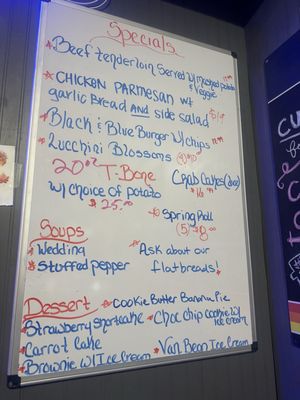 Specials
Beef tenderloin Served w/ mashed potato
& veggie
CHICKEN PARMESAN w/
garlic Bread AND side salad
Black & Blue Burger w/ chips
Zucchini Blossoms
20oz T-Bone
w/ choice of potato
$25.00
Crab Cakes (duo)
$16
Spring Roll
(5) - 8
Soups
Wedding
Stuffed pepper
Ask about our
flatbreads!
Dessert
Cookie Butter Banana Pie
Strawberry shortcake
Choc chip cookie w/
ice cream
Carrot Cake
Brownie w/ Ice Cream
Van Bean Ice Cream